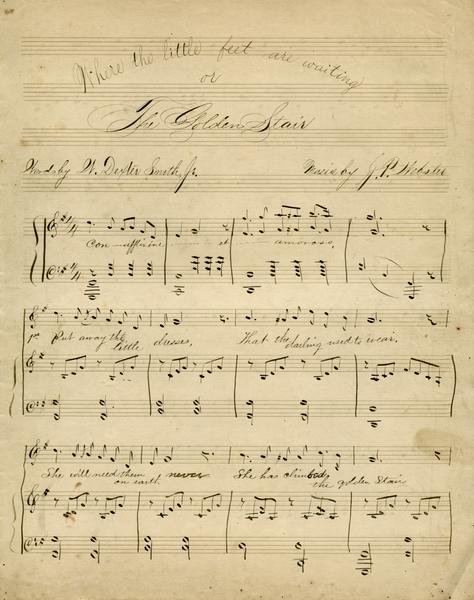 Where the little feet are waiting
or
The Golden Stair
Words by W. Dexter Smith, Jr. Music by J. P. Webster
4/4
con affizine et amoroso
4/4
1st Put away the little dresses, That the darling used to wear,
She will need them on earth never She has climbed the golden Stair